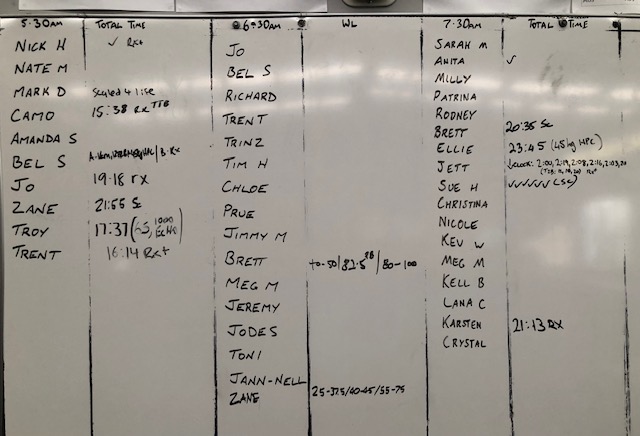 5:30AM TOTAL TIME
NICK H ✓ RX+
NATE M
MARK D Scaled 4 life
CAMO 15:38 RX TTB
AMANDA S
BEL S B: RX
JO 19:18 rx
ZANE 21:55 Sc
TROY 17:37 (65, 1000
TRENT 16:14 RX+
6:30AM WL
JO
BEL S
RICHARD
TRENT
TRINZ
TIM H
CHLOE
PRUE
JIMMY M
BRETT 40-50/82.5/80-100
MEG M
JEREMY
JODES
TONI
JANN-NELL
ZANE 25-37.5/40-45/55-75
7:30AM TOTAL TIME
SARAH M
ANITA ✓
MILLY
PATRINA
RODNEY
BRETT 20:35 Sc
ELLIE 23:45 (45kg HPC)
JETT 2:00, 2:19, 2:08, 2:16, 2:03, 20
SUE H ✓✓✓✓✓ (Sc)
CHRISTINA
NICOLE
KEV W
MEG M
KELL B
LANA C
KARSTEN 21:13 RX
CRYSTAL